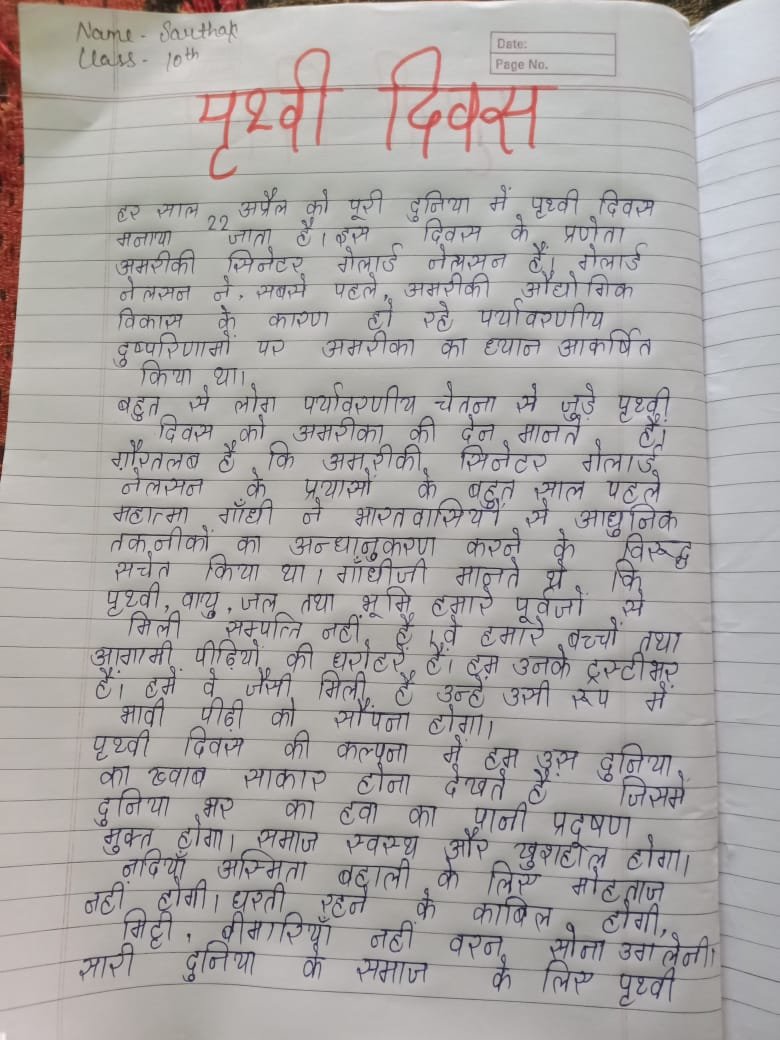 Name - Sarthak
Class - 10th
Date:
Page No.
पृथ्वी दिवस
हर साल 22 अप्रैल को पूरी दुनिया में पृथ्वी दिवस
मनाया जाता है। इस दिवस के प्रणेता
अमरीकी सिनेटर गेलार्ड नेल्सन हैं। गेलार्ड
नेलसन ने, सबसे पहले, अमरीकी औद्योगिक
विकास के कारण हो रहे पर्यावरणीय
दुष्परिणामों पर अमरीका का ध्यान आकर्षित
किया था।
बहुत से लोग पर्यावरणीय चेतना से जुड़े पृथ्वी
दिवस को अमरीका की देन मानते हैं।
ग़ौरतलब है कि अमरीकी सिनेटर गेलार्ड
नेलसन के प्रयासों के बहुत साल पहले
महात्मा गाँधी ने भारतवासियों से आधुनिक
तकनीकों का अन्धानुकरण करने के विरुद्ध
सचेत किया था। गाँधीजी मानते थे कि
पृथ्वी, वायु, जल तथा भूमि हमारे पूर्वजों से
मिली सम्पत्ति नहीं है। वे हमारे बच्चों तथा
आगामी पीढ़ियों की धरोहरें हैं। हम उनके ट्रस्टीभर
हैं। हमें वे जैसी मिली हैं उन्हें उसी रूप में
भावी पीढ़ी को सौंपना होगा।
पृथ्वी दिवस की कल्पना में हम उस दुनिया
का ख्वाब साकार होना देखते हैं जिसमें
दुनिया भर का हवा का पानी प्रदूषण
मुक्त होगा। समाज स्वस्थ और खुशहाल होगा।
नदियाँ अस्मिता बहाली के लिए मोहताज
नहीं होगी। धरती रहने के काबिल होगी,
मिट्टी, बीमारियाँ नहीं वरन सोना उगलेनी।
सारी दुनिया के समाज के लिए पृथ्वी